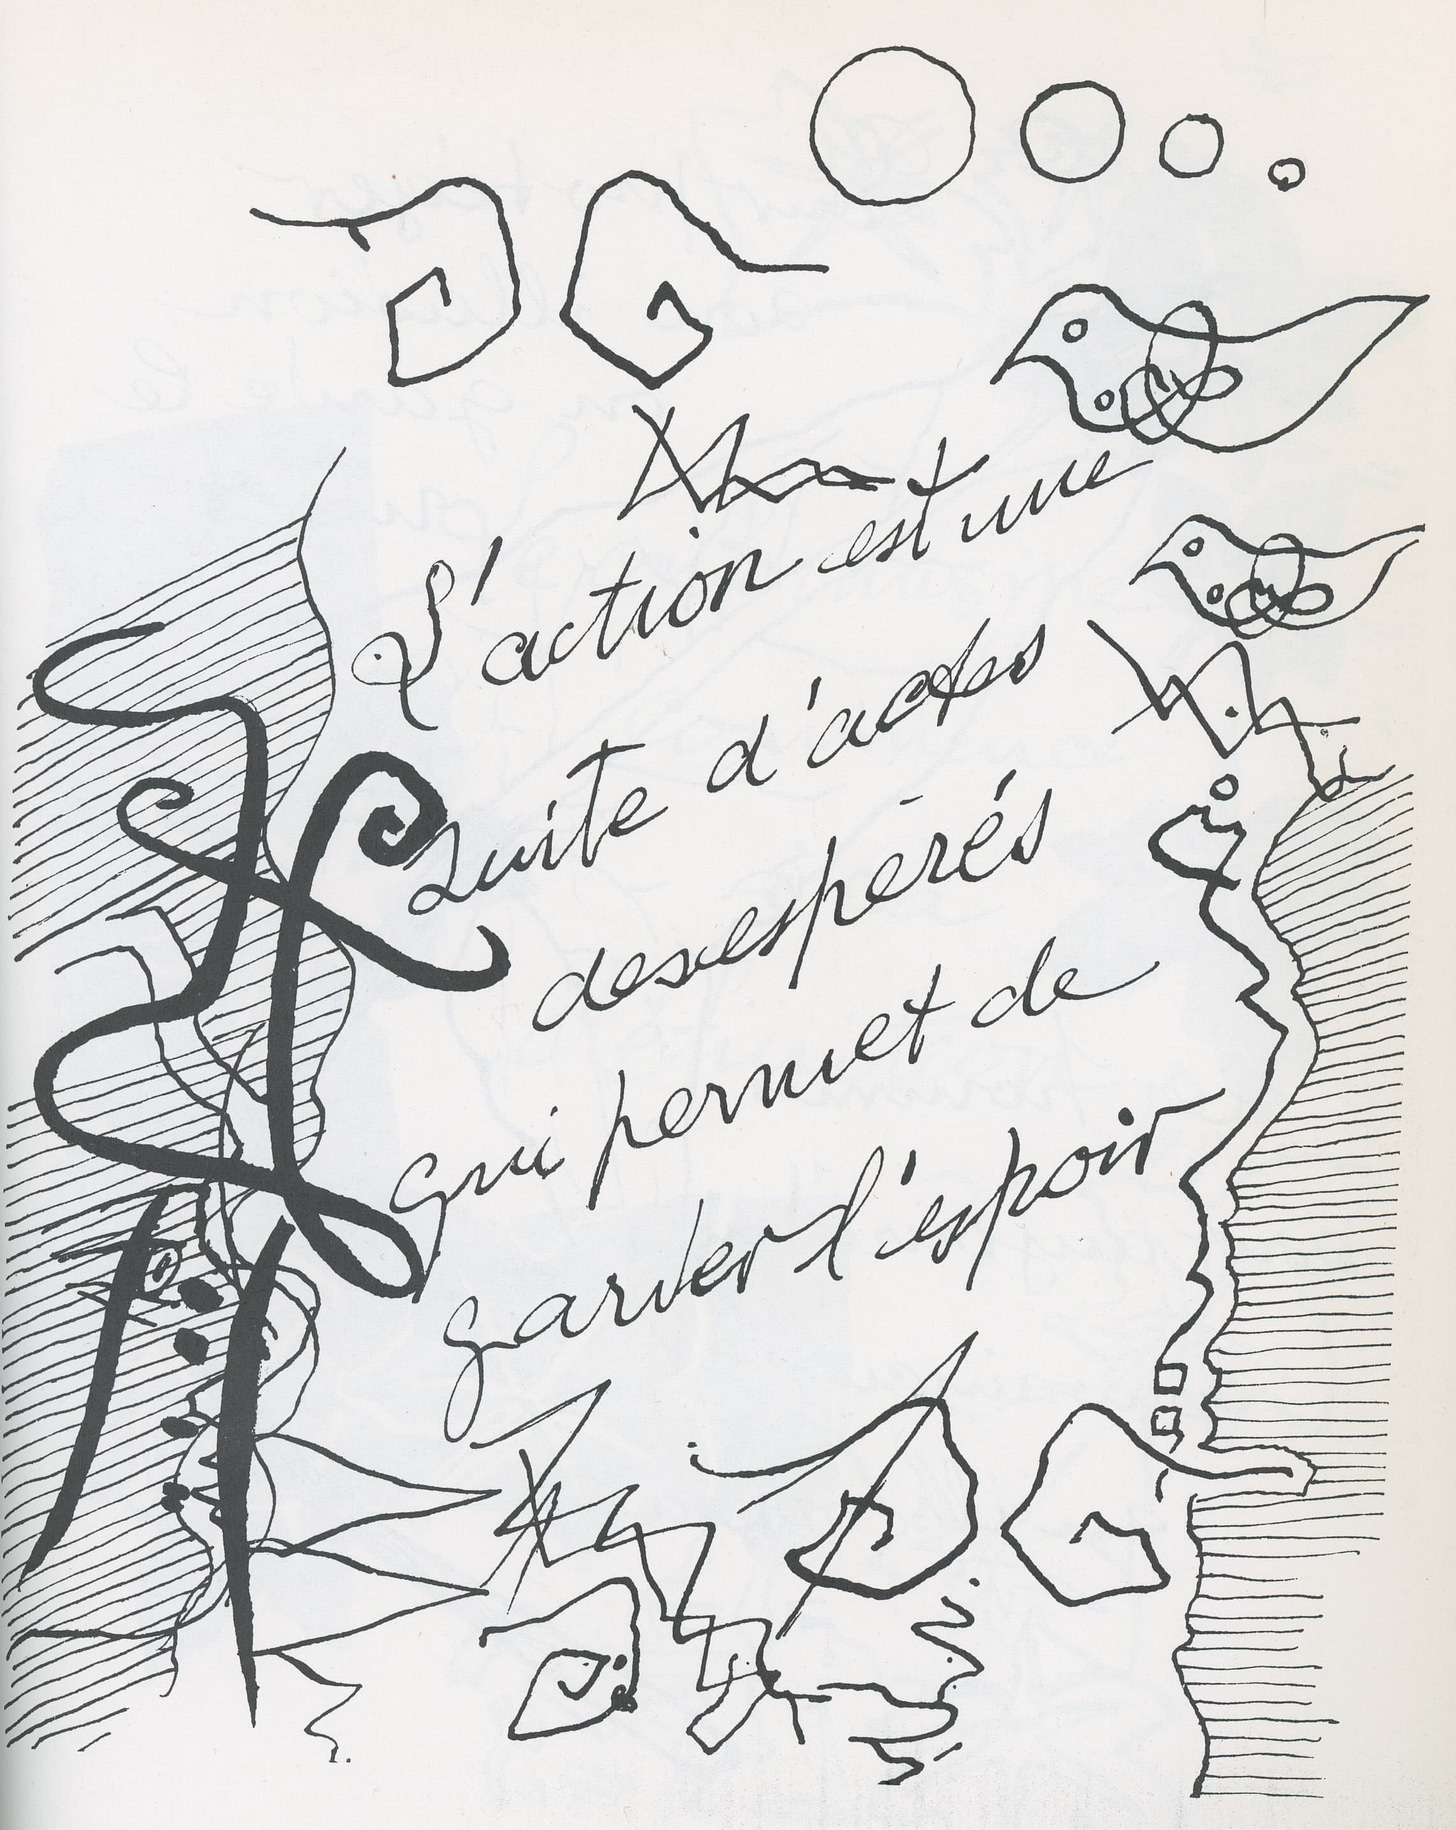 L'action est une
suite d'actes
desespérés
qui permet de
garder l'espoir